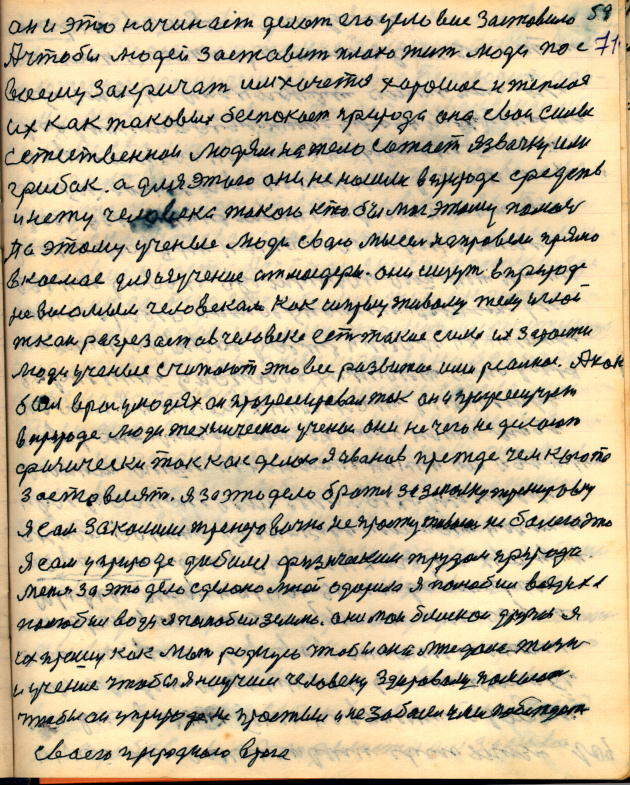 они это начинают делат его условие Заставило 59
А чтобы людей заставит плохо жит люди по с 71
воему Закричат им хочется хорошое и теплоя
их как таковых беспокоет природа она свои силы
естественной людям на тело сажает язвачку или
грибак. а для этого они не нашли в природе средств
и нету человека такого кто бы мог этому помоч
Па этому ученые люди сваю мысел направели прямо
в космас для изучение атмасферы. они ищут в природе
как живому телу иглой
ткан разрезает в человеке ест такие силы их
люди ученые считают это все развитое или реалное. А как
был враг у людях он прогрессировал так он и прогресирует
в природе люди технически ученаи они не чего не делают
физически так как делаю я Иванов прежде чем кого то
заставлят. я за это дело брался за закалку тренировку
Я сам закалился тренеровачно не простужываюс не балею это
Я сам у природе дабился физическим трудом природа
меня за это дело сделоно мной одарила я полюбил воздух я
полюбил воду я полюбил землю. они мои близкаи друзя я
их прошу как мат родную чтобы она мне дала жизн
и учение чтобы я научил человеку здаровому
чтобы он у природе не простыл и не заболел
сваего природнаго врага